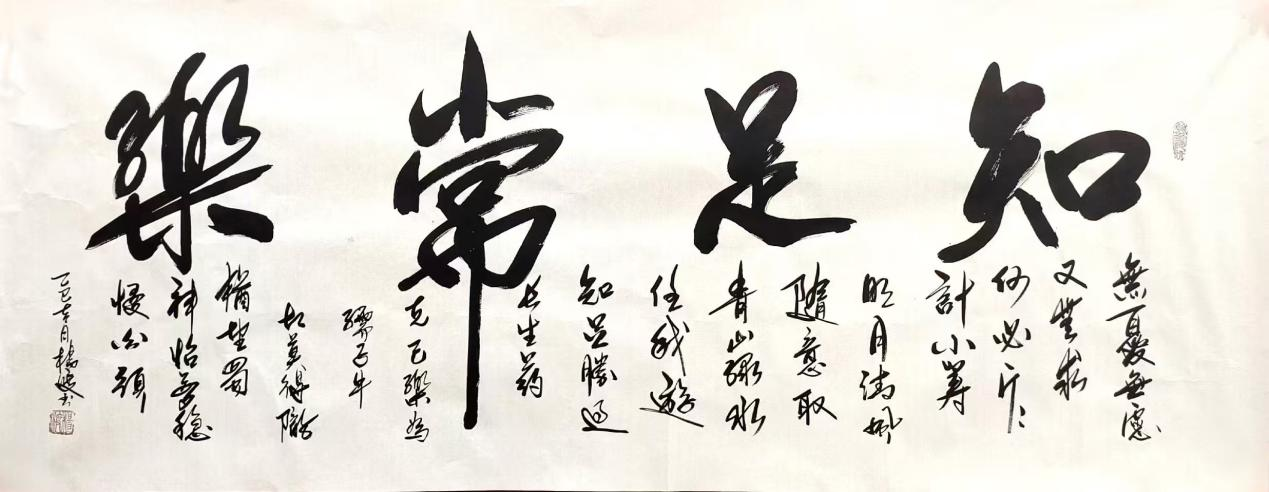 知足常樂
無憂無慮
又無求
何必斤〻
計小籌
明月清風
隨意取
青山綠水
任我遊
知足勝過
長生藥
克己樂為
孺子牛
切莫得隴
猶望蜀
神怡夢穩
慢白頭
乙巳吉月楊